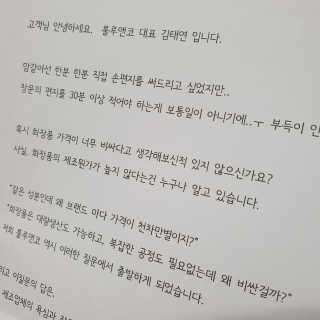 고객님 안녕하세요. 톨루앤코 대표 김태연 입니다.
맘같아선 한분 한분 직접 손편지를 써드리고 싶었지만..
장문의 편지를 30분 이상 적어야 하는게 보통일이 아니기에..ㅜ 부득이 인
혹시 화장품 가격이 너무 비싸다고 생각해보신적 있지 않으신가요?
사실, 화장품의 제조원가가 높지 않다는건 누구나 알고 있습니다.
"같은 성분인데 왜 브랜드 마다 가격이 천차만별이지?"
"화장품은 대량생산도 가능하고, 복잡한 공정도 필요없는데 왜 비싼걸까?"
저희 톨루앤코 역시 이러한 질문에서 출발하게 되었습니다.
리고 이질문의 답은,
제조업체의 욕심과